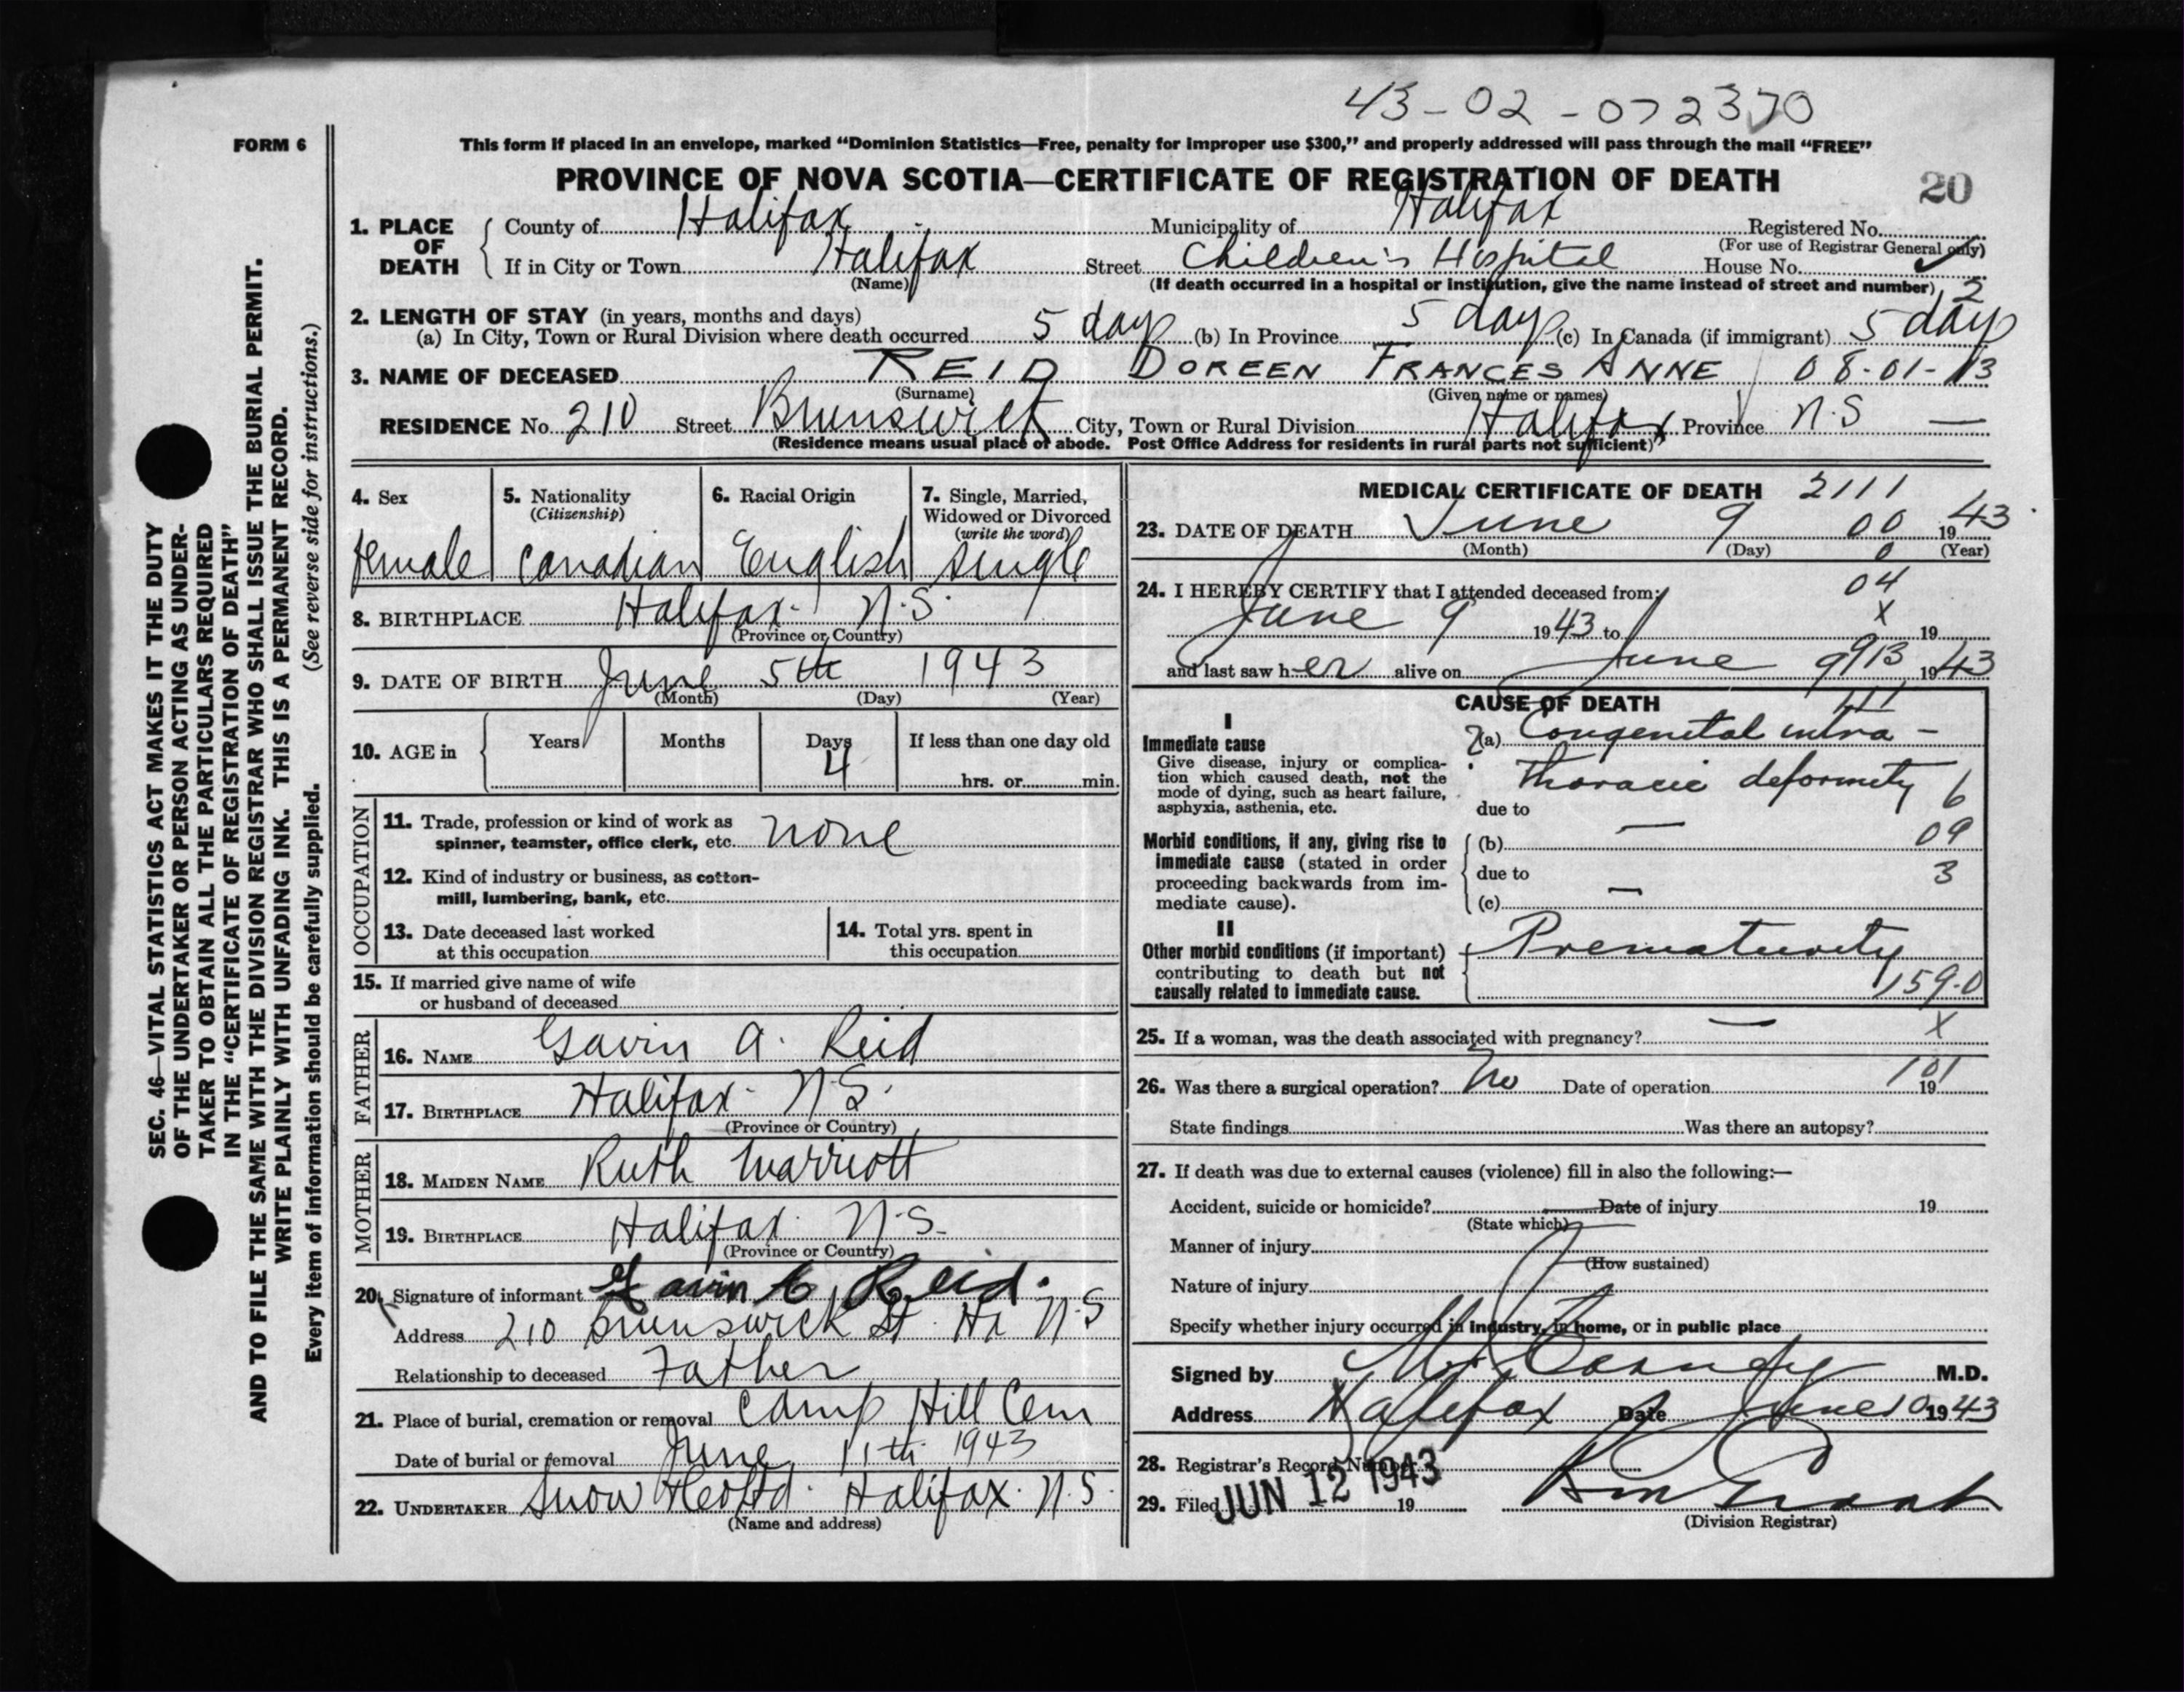 43-02-072370
FORM 6
This form if placed in an envelope, marked "Dominion Statistics—Free, penalty for improper use $300," and properly addressed will pass through the mail "FREE"
PROVINCE OF NOVA SCOTIA—CERTIFICATE OF REGISTRATION OF DEATH
20
1. PLACE OF DEATH
County of Halifax Municipality of Halifax Registered No.
(For use of Registrar General only)
If in City or Town Halifax Street Children's Hospital House No.
(Name) (If death occurred in a hospital or institution, give the name instead of street and number)
2
2. LENGTH OF STAY (in years, months and days)
(a) In City, Town or Rural Division where death occurred 5 days (b) In Province 5 days (c) In Canada (if immigrant) 5 days
3. NAME OF DECEASED REID DOREEN FRANCES ANNE 08-01-13
(Surname) (Given name or names)
RESIDENCE No. 210 Street Brunswick City, Town or Rural Division Halifax Province N.S —
(Residence means usual place of abode. Post Office Address for residents in rural parts not sufficient)
4. Sex
female
5. Nationality
(Citizenship)
Canadian
6. Racial Origin
English
7. Single, Married,
Widowed or Divorced
(write the word)
single
8. BIRTHPLACE Halifax. N.S.
(Province or Country)
9. DATE OF BIRTH June 5th 1943
(Month) (Day) (Year)
10. AGE in
Years Months Days If less than one day old
4
hrs. or min.
OCCUPATION
11. Trade, profession or kind of work as
spinner, teamster, office clerk, etc. none
12. Kind of industry or business, as cotton-
mill, lumbering, bank, etc.
13. Date deceased last worked
at this occupation
14. Total yrs. spent in
this occupation
15. If married give name of wife
or husband of deceased
FATHER
16. NAME Gavin A. Reid
17. BIRTHPLACE Halifax. N.S.
(Province or Country)
MOTHER
18. MAIDEN NAME Ruth Marriott
19. BIRTHPLACE Halifax. N.S.
(Province or Country)
20. Signature of informant Gavin Reid.
Address 210 Brunswick St. Hx N.S
Relationship to deceased Father
21. Place of burial, cremation or removal Camp Hill Cem
Date of burial or removal June 11th 1943
22. UNDERTAKER Snow Halifax. N.S.
(Name and address)
MEDICAL CERTIFICATE OF DEATH 2111
23. DATE OF DEATH June 9 00 1943
(Month) (Day) 0 (Year)
24. I HEREBY CERTIFY that I attended deceased from: 04
June 9 1943 to x 19
and last saw her alive on June 9 913 1943
CAUSE OF DEATH
I
Immediate cause
Give disease, injury or complica-
tion which caused death, not the
mode of dying, such as heart failure,
asphyxia, asthenia, etc.
(a) Congenital intra-
thoracic deformity 6
due to
Morbid conditions, if any, giving rise to
immediate cause (stated in order
proceeding backwards from im-
mediate cause).
(b) — 09
due to 3
(c) —
II
Other morbid conditions (if important)
contributing to death but not
causally related to immediate cause.
Prematurity
159.0
25. If a woman, was the death associated with pregnancy? — x
26. Was there a surgical operation? No Date of operation 19 101
State findings Was there an autopsy?
27. If death was due to external causes (violence) fill in also the following:—
Accident, suicide or homicide? Date of injury 19
(State which)
Manner of injury
(How sustained)
Nature of injury
Specify whether injury occurred in industry, in home, or in public place
Signed by M.D.
Address Halifax Date June 10 1943
28. Registrar's Record Number
29. Filed JUN 12 1943 19
(Division Registrar)
SEC. 46—VITAL STATISTICS ACT MAKES IT THE DUTY
OF THE UNDERTAKER OR PERSON ACTING AS UNDER-
TAKER TO OBTAIN ALL THE PARTICULARS REQUIRED
IN THE "CERTIFICATE OF REGISTRATION OF DEATH"
AND TO FILE THE SAME WITH THE DIVISION REGISTRAR WHO SHALL ISSUE THE BURIAL PERMIT.
WRITE PLAINLY WITH UNFADING INK. THIS IS A PERMANENT RECORD.
Every item of information should be carefully supplied. (See reverse side for instructions.)